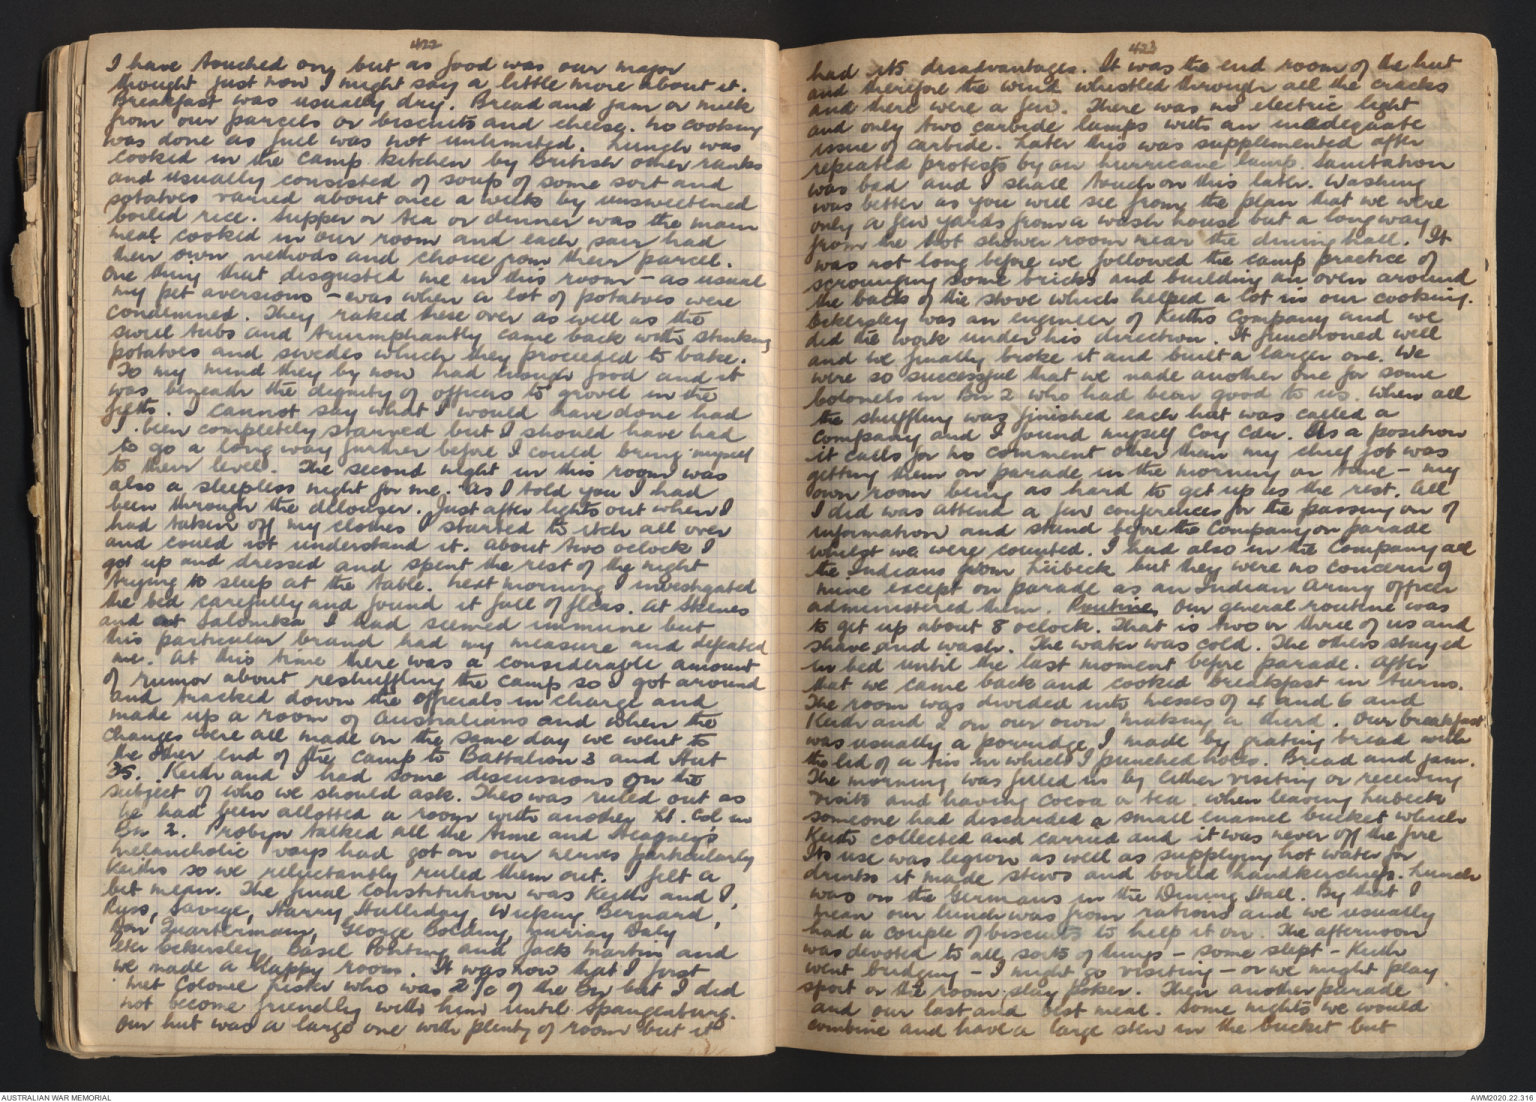 422
I have touched on, but as food was our major
thought just now I might say a little more about it.
Breakfast was usually dry. Bread and jam or milk
from our parcels or biscuits and cheese. No cooking
was done as fuel was not unlimited. Lunch was
cooked in the camp kitchen by British other ranks
and usually consisted of soup of some sort and
potatoes varied about once a week by unsweetened
boiled rice. Supper or tea or dinner was the main
meal cooked in our room and each pair had
their own methods and choice from their parcel.
One thing that disgusted me in this room - as usual
my pet aversions - was when a lot of potatoes were
condemned. They raked these over as well as the
swill tubs and triumphantly came back with stinking
potatoes and swedes which they proceeded to bake.
To my mind they by now had enough food and it
was beneath the dignity of officers to grovel in the
filth. I cannot say what I would have done had
I been completely starved but I should have had
to go a long way further before I could bring myself
to their level. The second night in this room was
also a sleepless night for me. As I told you I had
been through the delouser. Just after lights out when I
had taken off my clothes I started to itch all over
and could not understand it. About two oclock I
got up and dressed and spent the rest of the night
trying to sleep at the table. Next morning I investigated
the bed carefully and found it full of fleas. At Skines
and at Salonika I had seemed immune but
this particular brand had my measure and defeated
me. At this time there was a considerable amount
of rumor about reshuffling the camp so I got around
and tracked down the officials in charge and
made up a room of Australians and when the
changes were all made on the same day we went to
the other end of the camp to Battalion 3 and Hut
35. Keith and I had some discussions on the
subject of who we should ask. Theo was ruled out as
he had been allotted a room with another Lt. Col in
Bn 2. Probyn talked all the time and Heagney's
melancholic ways had got on our nerves particularly
Keiths so we reluctantly ruled them out. I felt a
bit mean. The final constitution was Keith and I,
Russ, Savige, Harry, Halliday, Bernard,
Don Quartermain, George Bolding, Murray Daly
Bekersley, Basil Ponting and Jack Martin and
we made a happy room. It was now that I first
met Colonel Lister who was 2 I/c of the Bn but I did
not become friendly with him until Spangenburg.
Our hut was a large one with plenty of room but it
423
had its disadvantages. It was the end room of the hut
and therefore the wind whistled through all the cracks
and there were a few. There was no electric light
and only two carbide lamps with an inadequate
issue of carbide. Later this was supplemented after
repeated protests by an hurricane lamp. Sanitation
was bad and I shall touch on this later. Washing
was better as you will see from the plan that we were
only a few yards from a wash house but a long way
from the hot shower room near the dining hall. It
was not long before we followed the camp practice of
scrounging some bricks and building an oven around
the back of the stove which helped a lot in our cooking.
Bekersley was an engineer of Keiths Company and we
did the work under his direction. It functioned well
and we finally broke it and built a larger one. We
were so successful that we made another one for some
Colonels in Bn 2 who had been good to us. When all
the shuffling was finished each hut was called a
Company and I found myself Coy Cdr. As a position
it calls for no comment other than my chief job was
getting them on parade in the morning on time - my
own room being as hard to get up as the rest. All
I did was attend a few conferences for the passing on of
information and stand before the Company on parade
whilst we were counted. I had also in the Company all
the Indians from Lübeck but they were no concern of
mine except on parade as an Indian Army Officer
administered them. Routine. Our general routine was
to get up about 8 oclock. That is two or three of us and
shave and wash. The water was cold. The others stayed
in bed until the last moment before parade. After
that we came back and cooked breakfast in turns.
The room was divided into messes of 4 and 6 and
Keith and I on our own making a third. Our breakfast
was usually a porridge I made by grating bread with
the lid of a tin in which I punched holes. Bread and jam.
The morning was filled in by either visiting or receiving
visits and having cocoa or tea. When leaving Lubeck
someone had discarded a small enamel bucket which
Keith collected and carried and it was never off the fire
Its use was legion as well as supplying hot water for
drinks it made stews and boiled handkerchiefs. Lunch
was on the Germans in the Dining Hall. By that I
mean our lunch was from rations and we usually
had a couple of biscuits to help it on. The afternoon
was devoted to all sorts of things - some slept - Keith
went bridging - I might go visiting - or we might play
sport or the room play poker. Then another parade
and our last and best meal. Some nights we would
combine and have a large stew in the bucket but
AUSTRALIAN WAR MEMORIAL
AWM2020.22.316